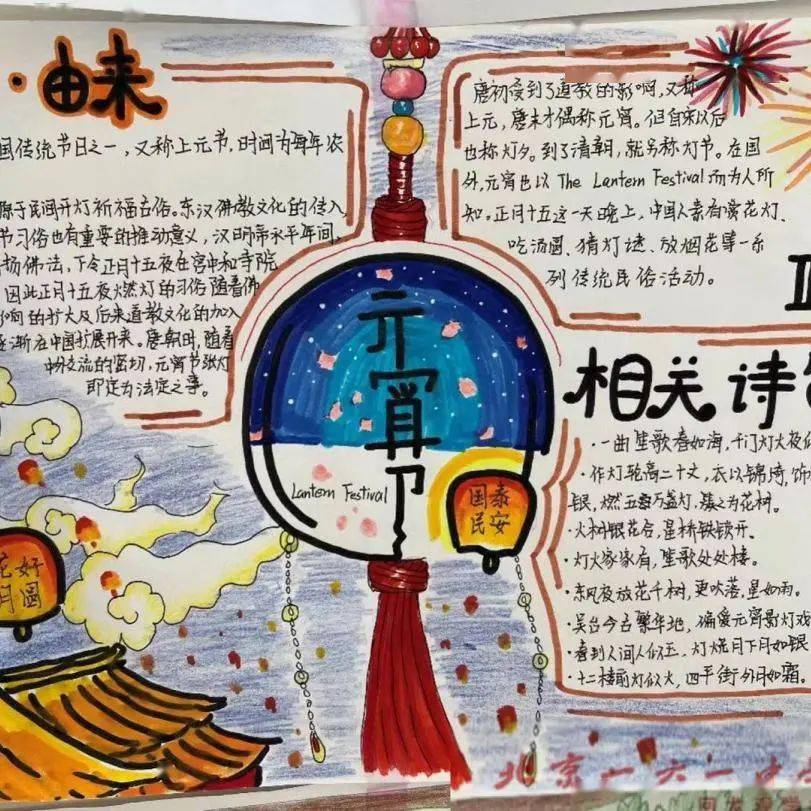 ·由来
国传统节日之一，又称上元节，时间为每年农
源于民间开灯祈福古俗。东汉佛教文化的传入，
节习俗也有重要的推动意义，汉明帝永平年间，
扬佛法，下令正月十五夜在宫中和寺院
因此正月十五夜燃灯的习俗随着佛
响的扩大及后来道教文化的加入
逐渐在中国扩展开来。唐朝时，随着
中外交流的密切，元宵节张灯
即定为法定之事。
唐初受到了道教的影响，又称
上元，唐末才偶称元宵。但自宋以后
也称灯夕。到了清朝，就另称灯节。在国
外，元宵也以 The Lantern Festival 而为人所
知。正月十五这一天晚上，中国人素有赏花灯、
吃汤圆、猜灯谜、放烟花等一系
列传统民俗活动。
元宵节
Lantern Festival
国泰
民安
花好
月圆
相关诗
·一曲笙歌春如海，千门灯火夜
·作灯轮高二十丈，衣以锦绮，饰
银，燃五万盏灯，簇之为花树。
·火树银花合，星桥铁锁开。
·灯火家家有，笙歌处处楼。
·东风夜放花千树，更吹落，星如雨。
·吴台今古繁华地，偏爱元宵影灯戏
·看到人间人似玉，灯烧月下月如银
·十二楼前灯似火，四平街外月如霜。
北京一六一中